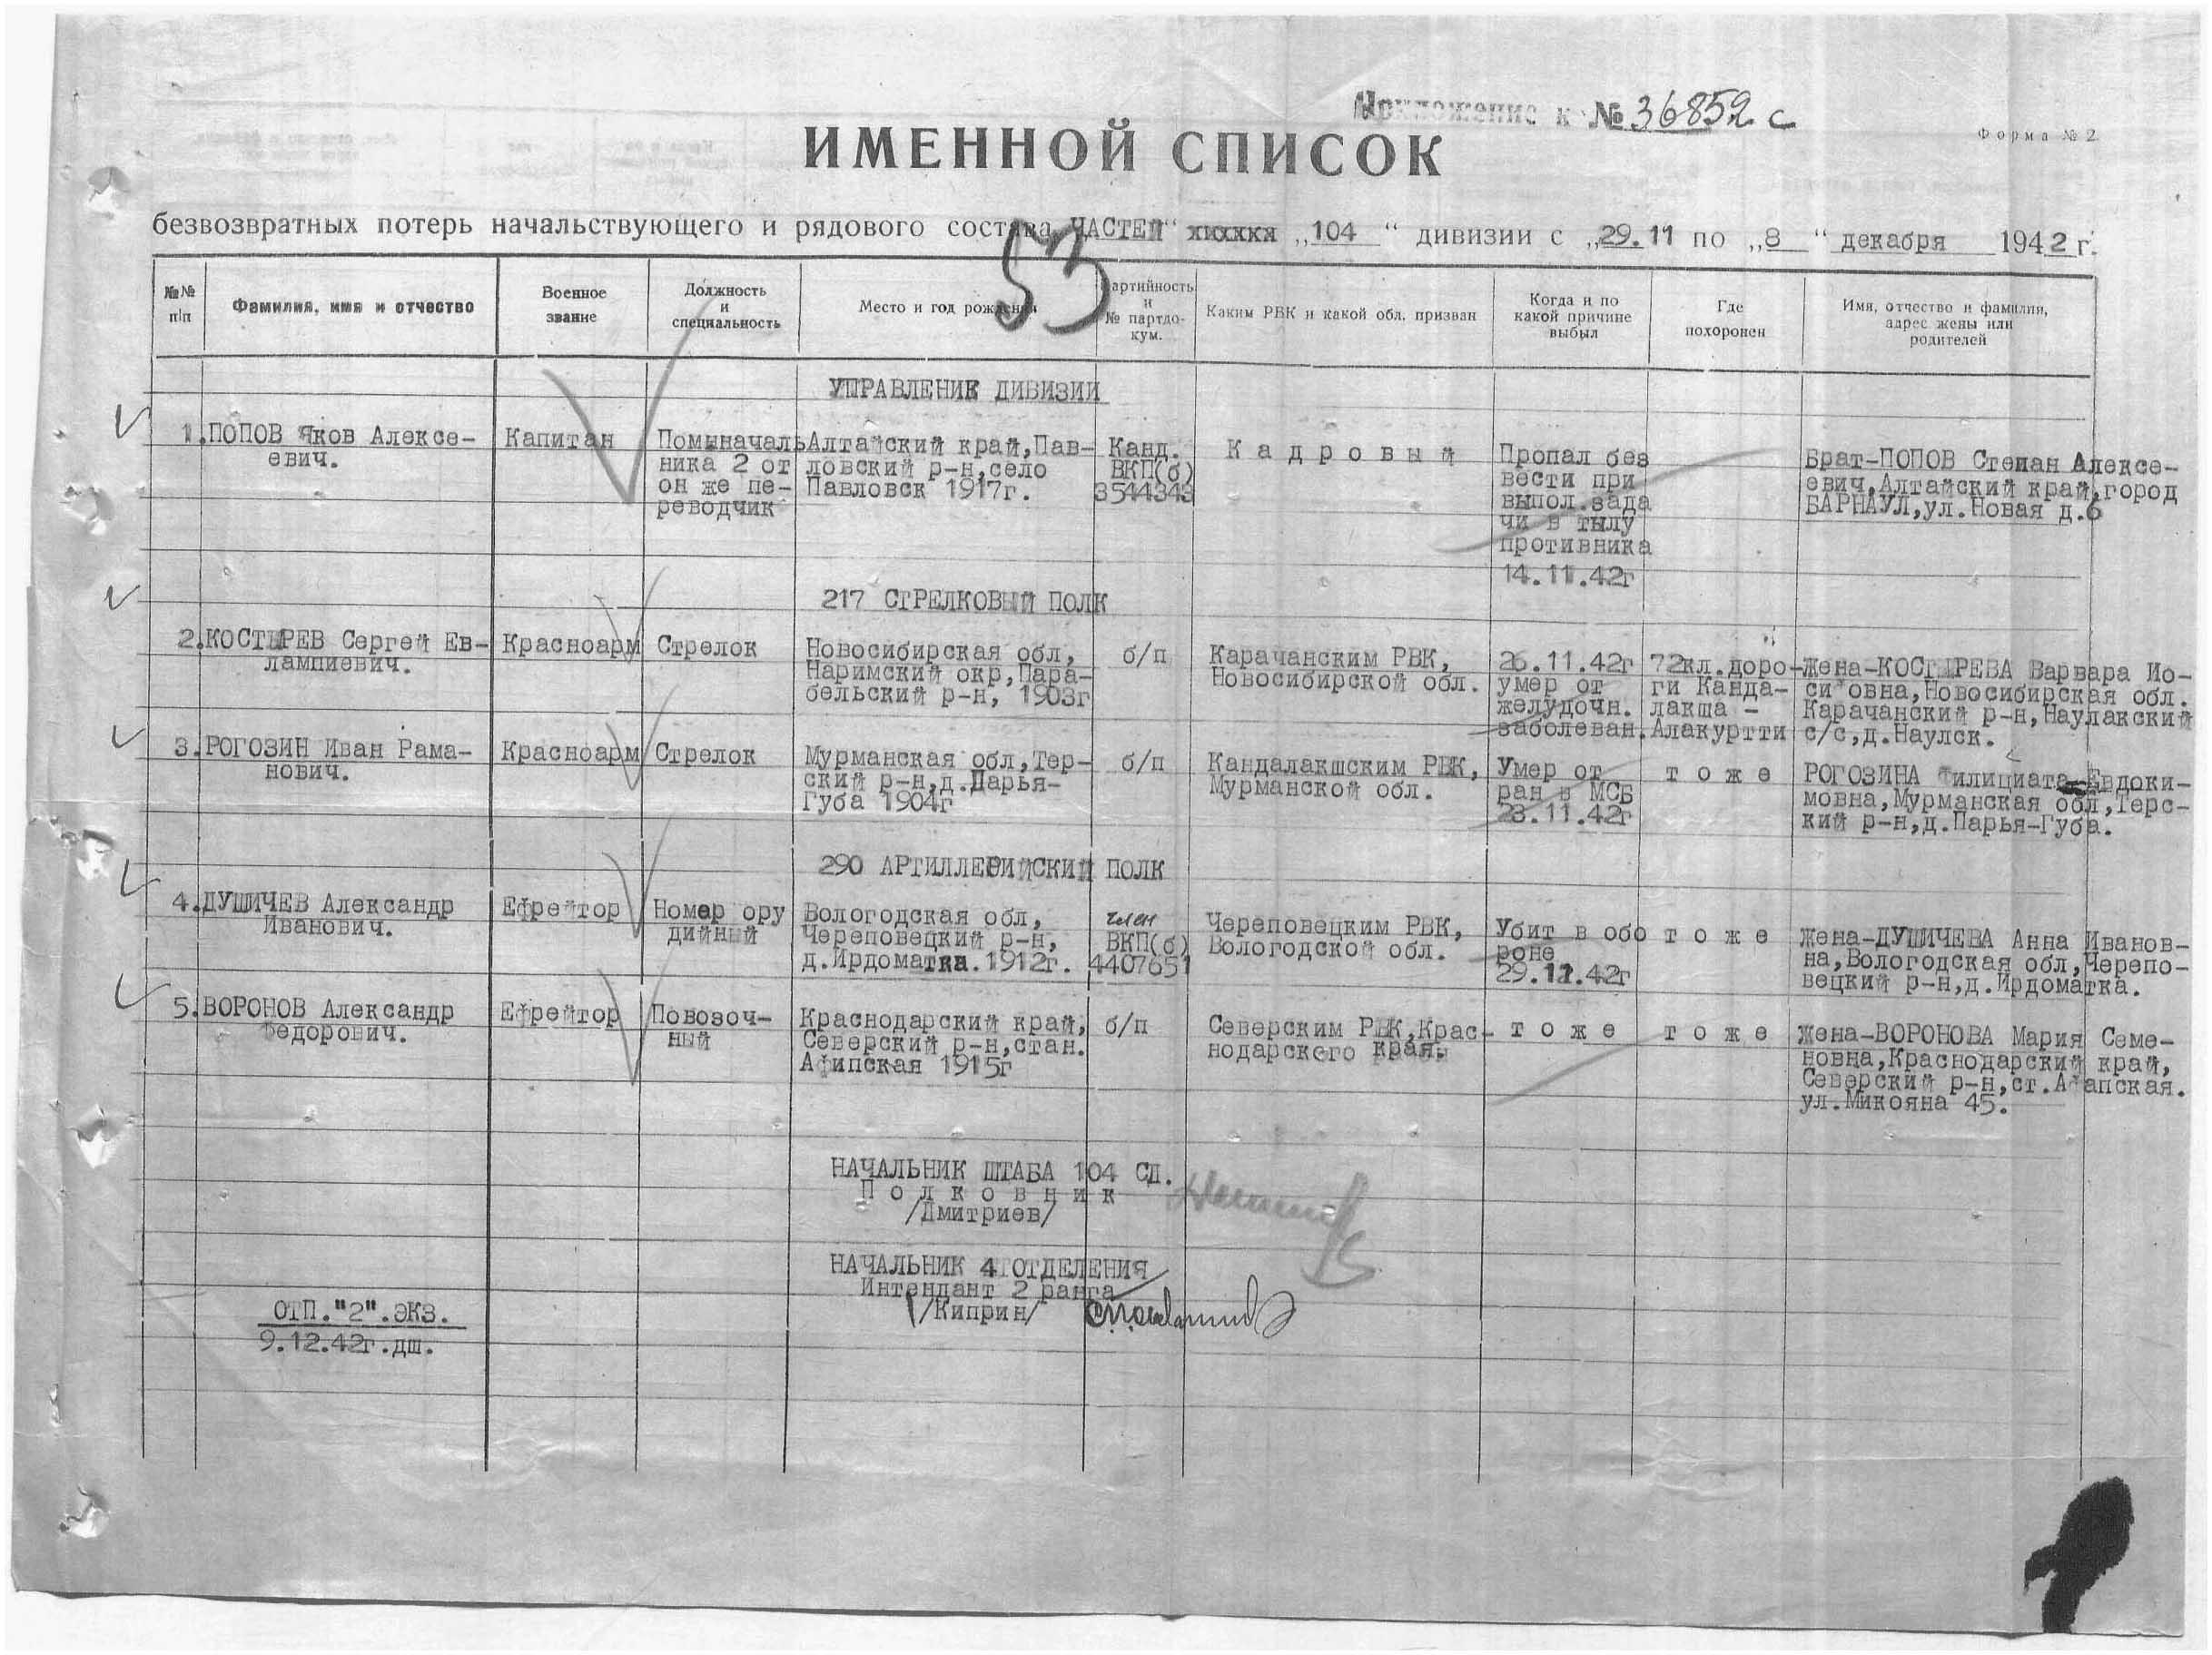 Приложение к № 36852 с
Форма № 2
ИМЕННОЙ СПИСОК
безвозвратных потерь начальствующего и рядового состава ЧАСТЕЙ" „104" дивизии с „29.11 по „8" декабря 1942 г.
53
№№ п|п
Фамилия, имя и отчество
Военное звание
Должность и специальность
Место и год рождения
артийность и № партдо- кум.
Каким РВК и какой обл. призван
Когда и по какой причине выбыл
Где похоронен
Имя, отчество и фамилия, адрес жены или родителей
УПРАВЛЕНИЕ ДИВИЗИИ
1. ПОПОВ Яков Алексе-
евич.
Капитан
Пом.началь
ника 2 от
он же пе-
реводчик
Алтайский край,Пав-
ловский р-н,село
Павловск 1917г.
Канд.
ВКП(б)
3544343
Кадровый
Пропал без
вести при
выпол.зада
чи в тылу
противника
14.11.42г
Брат-ПОПОВ Степан Алексе-
евич,Алтайский край,город
БАРНАУЛ,ул.Новая д.6
217 СТРЕЛКОВЫЙ ПОЛК
2. КОСТЫРЕВ Сергей Ев-
лампиевич.
Красноарм
Стрелок
Новосибирская обл,
Наримский окр,Пара-
бельский р-н, 1903г
б/п
Карачанским РВК,
Новосибирской обл.
26.11.42г
умер от
желудочн.
заболеван.
72кл.доро-
ги Канда-
лакша -
Алакуртти
Жена-КОСТЫРЕВА Варвара Ио-
сифовна,Новосибирская обл.
Карачанский р-н,Наулакский
с/с,д.Наулск.
3. РОГОЗИН Иван Рама-
нович.
Красноарм
Стрелок
Мурманская обл,Тер-
ский р-н,д.Парья-
Губа 1904г
б/п
Кандалакшским РВК,
Мурманской обл.
Умер от
ран в МСБ
23.11.42г
тоже
РОГОЗИНА Филициата Евдоки-
мовна,Мурманская обл,Терс-
кий р-н,д.Парья-Губа.
290 АРТИЛЛЕРИЙСКИЙ ПОЛК
4. ДУШИЧЕВ Александр
Иванович.
Ефрейтор
Номер ору
дийный
Вологодская обл,
Череповецкий р-н,
д.Ирдоматка.1912г.
член
ВКП(б)
4407651
Череповецким РВК,
Вологодской обл.
Убит в обо
роне
29.11.42г
тоже
Жена-ДУШИЧЕВА Анна Иванов-
на,Вологодская обл,Черепо-
вецкий р-н,д.Ирдоматка.
5. ВОРОНОВ Александр
Федорович.
Ефрейтор
Повозоч-
ный
Краснодарский край,
Северский р-н,стан.
Афипская 1915г
б/п
Северским РВК,Крас-
нодарского края.
тоже
тоже
Жена-ВОРОНОВА Мария Семе-
новна,Краснодарский край,
Северский р-н,ст.Афапская.
ул.Микояна 45.
НАЧАЛЬНИК ШТАБА 104 СД.
Полковник
/Дмитриев/
НАЧАЛЬНИК 4 ОТДЕЛЕНИЯ
Интендант 2 ранга
/Киприн/
ОТП."2".ЭКЗ.
9.12.42г.дш.